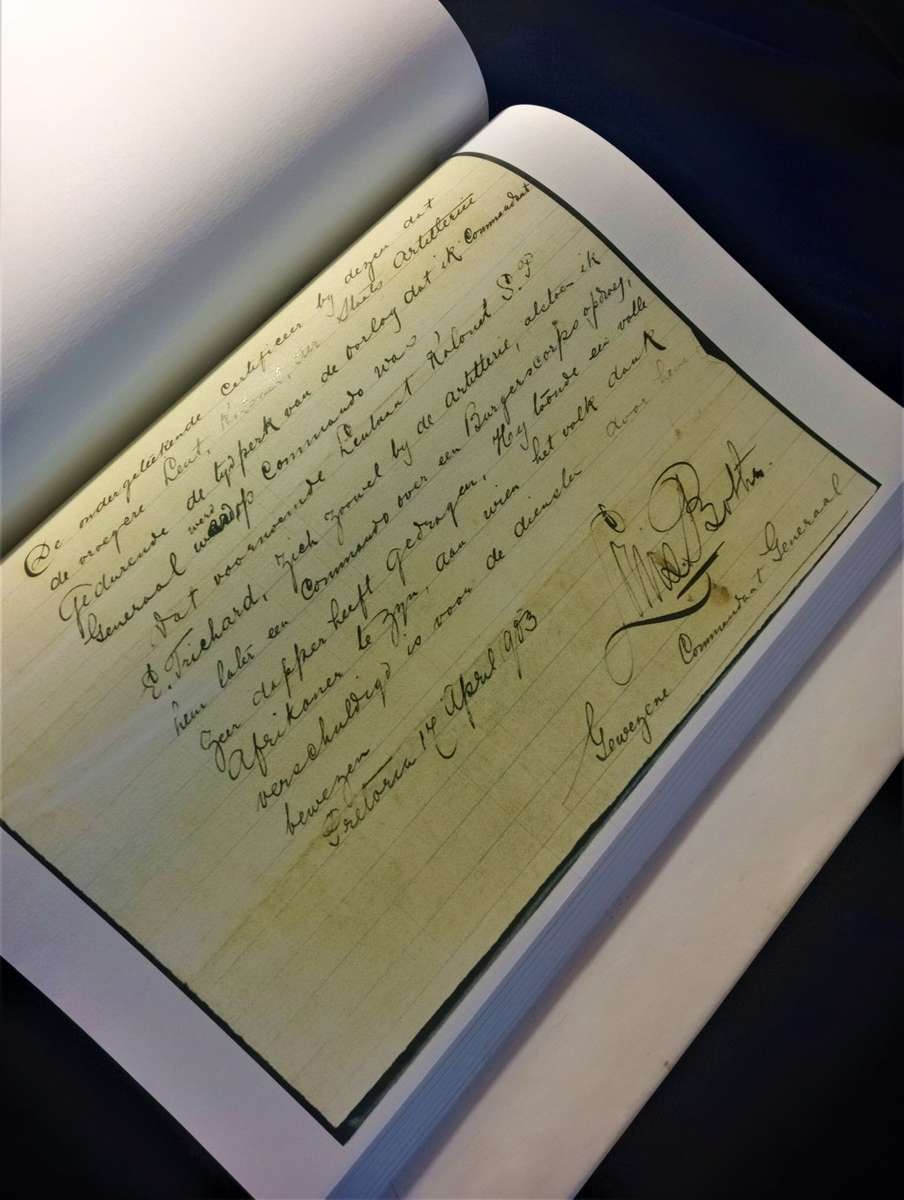 De ondergeteekende certificeer by dezen dat
de vroegere Leut. Kolonel der Staats Artillerie
Gedurende de tydperk van de oorlog dat ik Commandant
Generaal werd op Commando was,
Dat voornoemde Leutnant Kolonel S. P.
E. Trichard, zich zoowel by de Artillerie, alstoen ik
hem later een Commando over een Burgerscorps opdroeg,
Zeer dapper heeft gedragen, Hy toonde een volle
Afrikaner te zyn, aan wien het volk dank
verschuldigd is voor de diensten door hem
bewezen
Pretoria 17 April 903
Louis Botha.
Gewezene Commandant Generaal